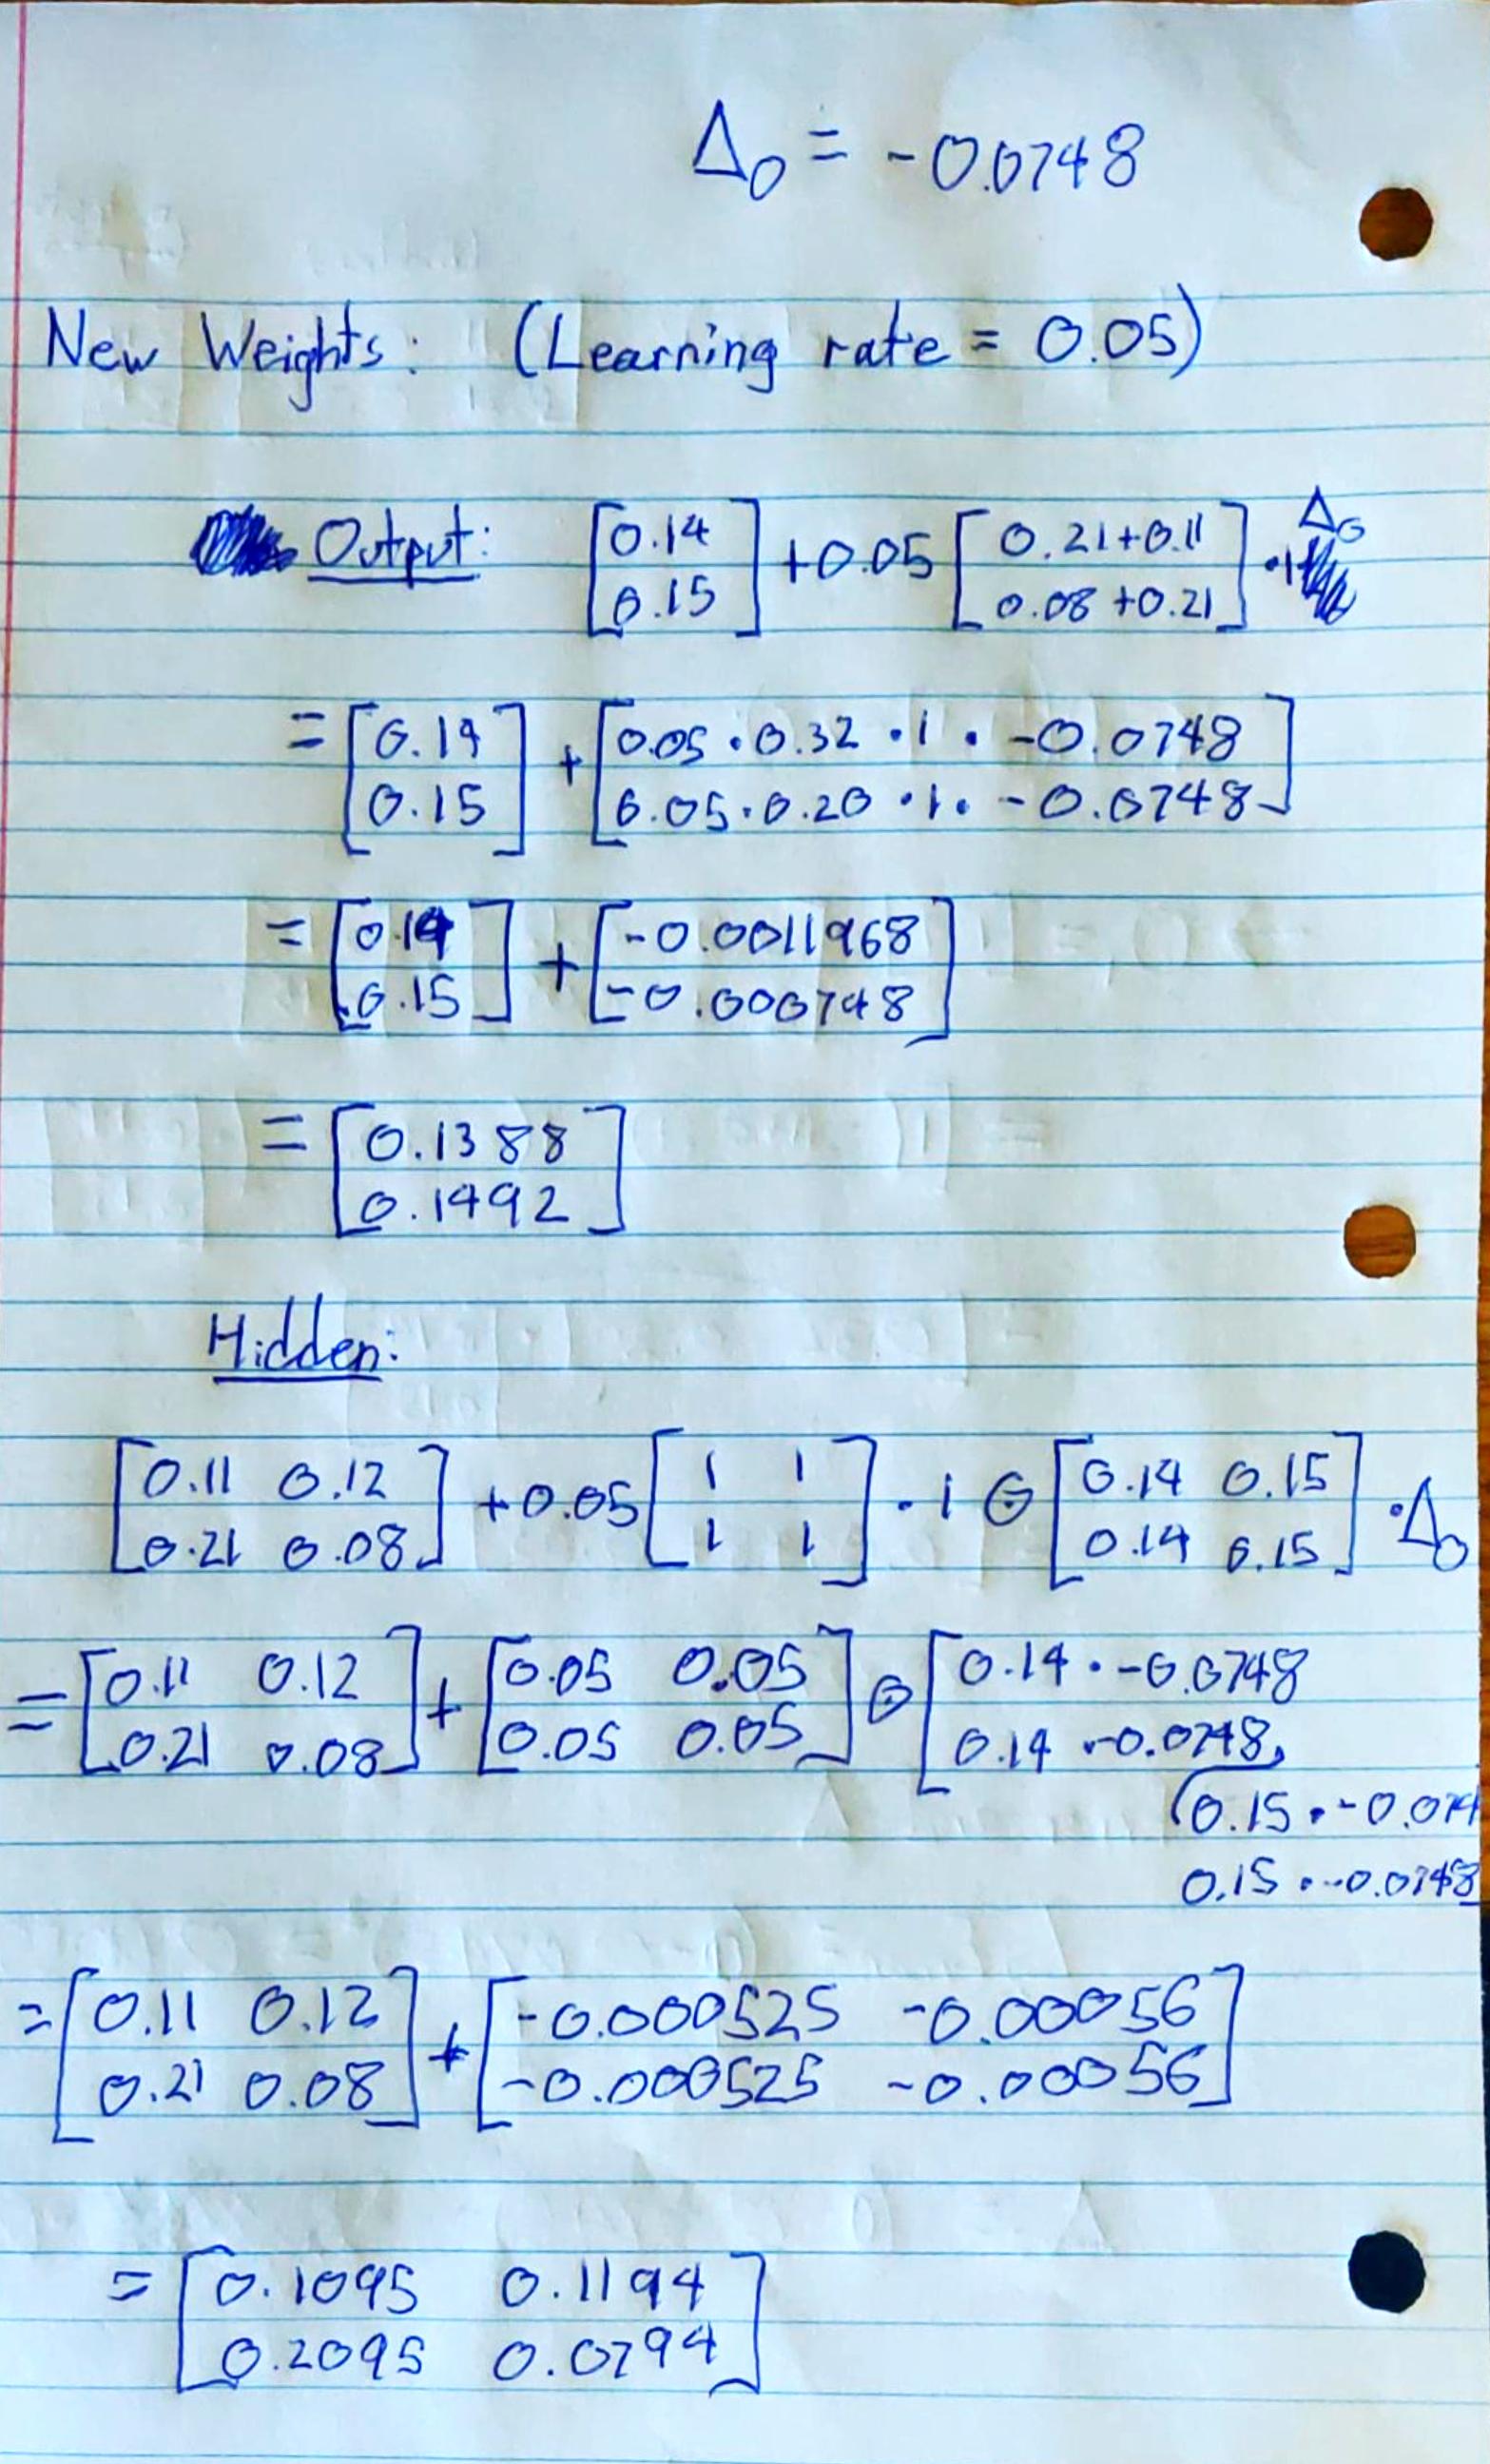 Δ₀ = -0.0748
New Weights: (Learning rate = 0.05)
Output: [0.14 0.15] + 0.05 [0.21+0.11 0.08+0.21] · 1 Δ₀
= [0.14 0.15] + [0.05 · 0.32 · 1 · -0.0748 0.05 · 0.20 · 1 · -0.0748]
= [0.14 0.15] + [-0.0011968 -0.000748]
= [0.1388 0.1492]
Hidden:
[0.11 0.12 0.21 0.08] + 0.05 [1 1 1 1] · 1 ⊙ [0.14 0.15 0.14 0.15] · Δ₀
= [0.11 0.12 0.21 0.08] + [0.05 0.05 0.05 0.05] ⊙ [0.14 · -0.0748 0.14 · -0.0748,
0.15 · -0.074
0.15 · -0.0748
= [0.11 0.12 0.21 0.08] + [-0.000525 -0.00056 -0.000525 -0.00056]
= [0.1095 0.1194 0.2095 0.0794]